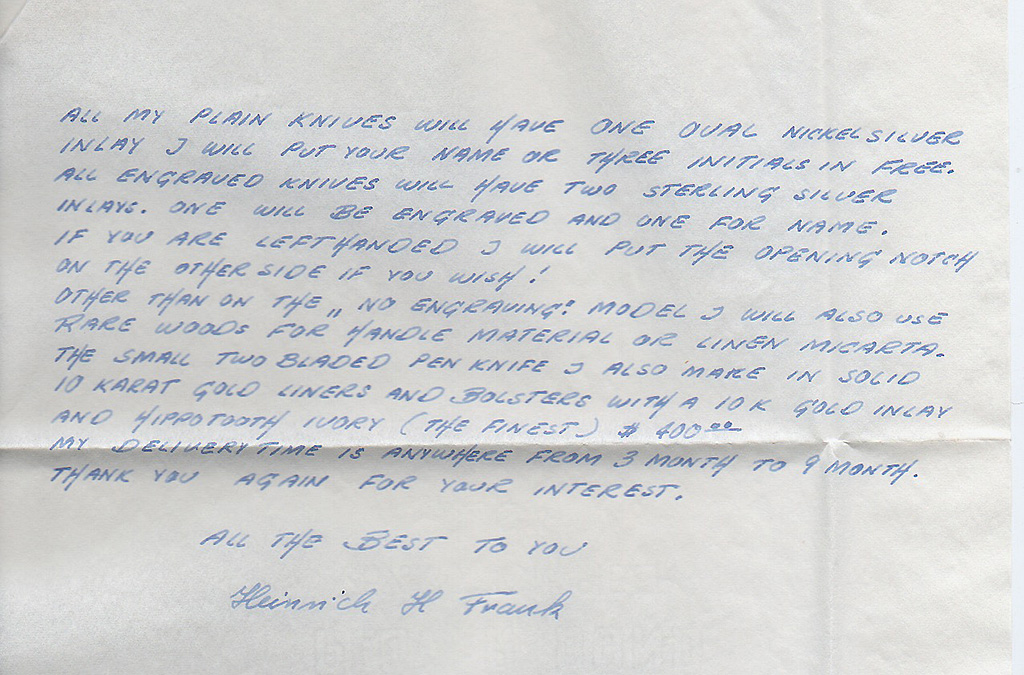 ALL MY PLAIN KNIVES WILL HAVE ONE OVAL NICKELSILVER
INLAY I WILL PUT YOUR NAME OR THREE INITIALS IN FREE.
ALL ENGRAVED KNIVES WILL HAVE TWO STERLING SILVER
INLAYS. ONE WILL BE ENGRAVED AND ONE FOR NAME.
IF YOU ARE LEFTHANDED I WILL PUT THE OPENING NOTCH
ON THE OTHER SIDE IF YOU WISH!
OTHER THAN ON THE „NO ENGRAVING“ MODEL I WILL ALSO USE
RARE WOODS FOR HANDLE MATERIAL OR LINEN MICARTA.
THE SMALL TWO BLADED PEN KNIFE I ALSO MAKE IN SOLID
10 KARAT GOLD LINERS AND BOLSTERS WITH A 10K GOLD INLAY
AND HIPPOTOOTH IVORY (THE FINEST) $ 400.00
MY DELIVERY TIME IS ANYWHERE FROM 3 MONTH TO 9 MONTH.
THANK YOU AGAIN FOR YOUR INTEREST.
ALL THE BEST TO YOU
Heinrich H Frank